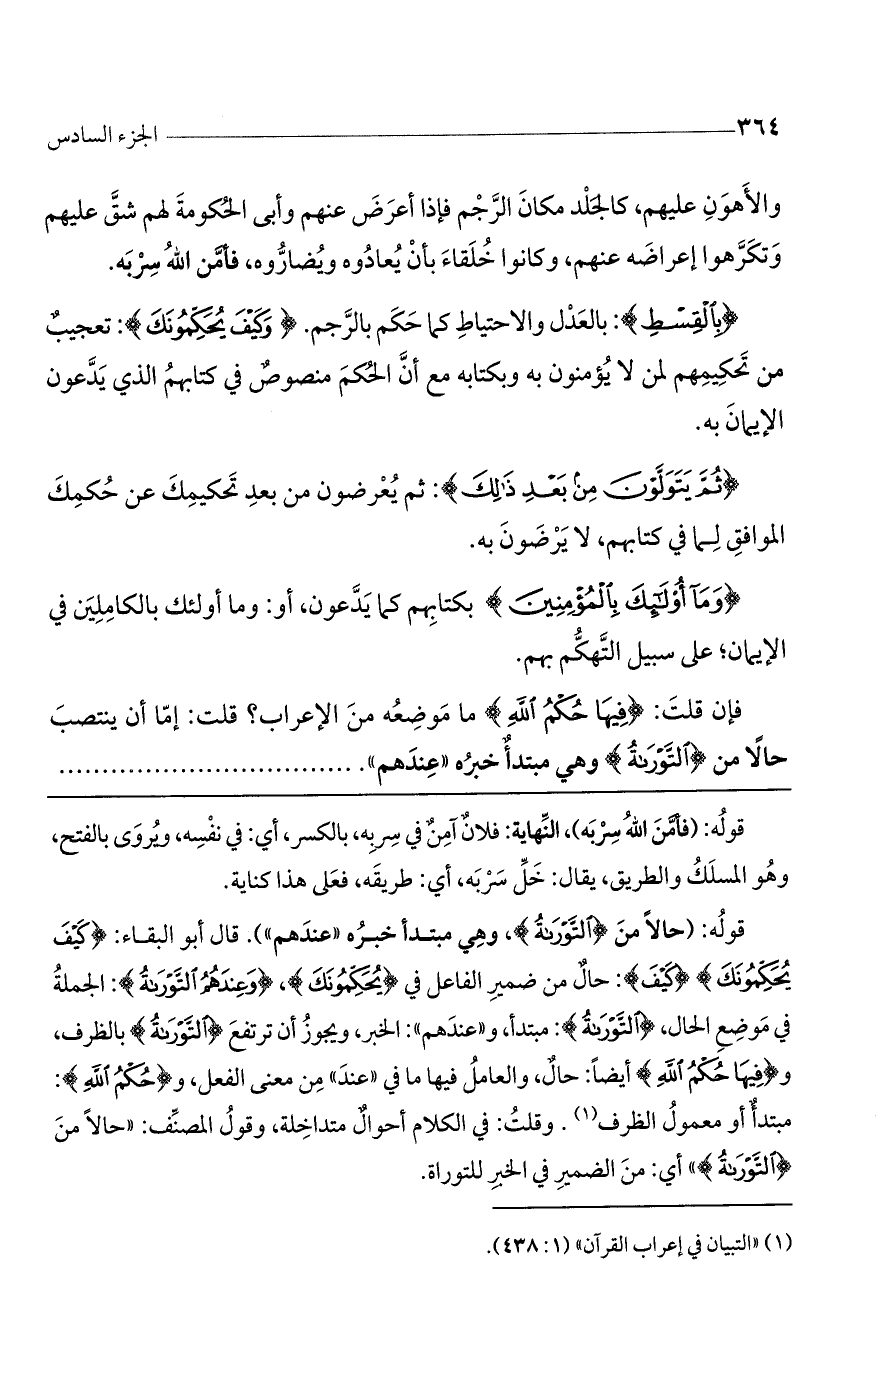 ٣٦٤ الجزء السادس
والأَهوَنِ عليهم، كالجَلْد مكانَ الرَّجْم فإذا أعرَضَ عنهم وأبى الحُكومةَ لهم شقَّ عليهم
وَتكَرَّهوا إعراضَه عنهم، وكانوا خُلَقاءَ بأنْ يُعادُوه ويُضارُّوه، فأمَّن اللهُ سِرْبَه.
﴿بِٱلْقِسْطِ﴾: بالعَدْل والاحتياطِ كما حَكَم بالرَّجم. ﴿وَكَيْفَ يُحَكِّمُونَكَ﴾: تعجيبٌ
من تَحكِيمِهم لمن لا يُؤمنون به وبكتابه مع أنَّ الحُكمَ منصوصٌ في كتابهمُ الذي يَدَّعون
الإيمانَ به.
﴿ثُمَّ يَتَوَلَّوْنَ مِنۢ بَعْدِ ذَٰلِكَ﴾: ثم يُعْرِضون من بعدِ تَحكيمِكَ عن حُكمِكَ
الموافقِ لِـما في كتابهم، لا يَرْضَونَ به.
﴿وَمَآ أُوْلَٰٓئِكَ بِٱلْمُؤْمِنِينَ﴾ بكتابِهم كما يَدَّعون، أو: وما أولئك بالكامِلِيَن في
الإيمان؛ على سبيل التَّهكُّم بهم.
فإن قلتَ: ﴿فِيهَا حُكْمُ ٱللَّهِ﴾ ما مَوضِعُه منَ الإعراب؟ قلت: إمّا أن ينتصبَ
حالًا من ﴿ٱلتَّوْرَىٰةُ﴾ وهي مبتدأٌ خبرُه «عِندَهم». .................................
قولُه: (فأمَّنَ اللهُ سِرْبَه)، النِّهاية: فلانٌ آمِنٌ في سِربِه، بالكسر، أي: في نفْسِه، ويُروَى بالفتح،
وهُو المسلَكُ والطريق، يقال: خَلِّ سَرْبَه، أي: طريقَه، فعَلى هذا كناية.
قولُه: (حالاً منَ ﴿ٱلتَّوْرَىٰةُ﴾، وهِي مبتـدأ خبـرُه «عندَهم»). قال أبو البقـاء: ﴿كَيْفَ
يُحَكِّمُونَكَ﴾ ﴿كَيْفَ﴾: حالٌ من ضميرِ الفاعل في ﴿يُحَكِّمُونَكَ﴾، ﴿وَعِندَهُمُ ٱلتَّوْرَىٰةُ﴾: الجملةُ
في مَوضِعِ الحال، ﴿ٱلتَّوْرَىٰةُ﴾: مبتدأ، و«عندَهم»: الخبر، ويجوزُ أن ترتفعَ ﴿ٱلتَّوْرَىٰةُ﴾ بالظرف،
و﴿فِيهَا حُكْمُ ٱللَّهِ﴾ أيضاً: حالٌ، والعاملُ فيها ما في «عندَ» مِن معنى الفعل، و﴿حُكْمُ ٱللَّهِ﴾:
مبتدأٌ أو معمولُ الظرف(١). وقلتُ: في الكلام أحوالٌ متداخِلة، وقولُ المصنِّف: «حالاً منَ
﴿ٱلتَّوْرَىٰةُ﴾» أي: منَ الضميرِ في الخبرِ للتوراة.
(١) «التبيان في إعراب القرآن» (١: ٤٣٨).